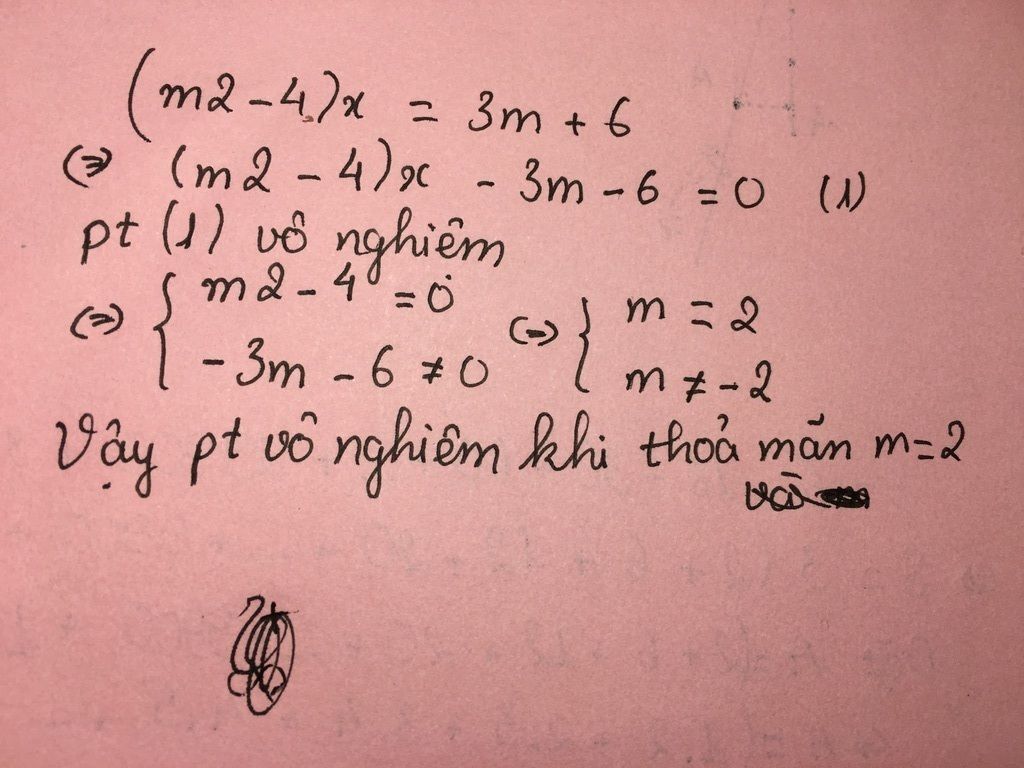 (m2-4)x = 3m + 6
(⇒) (m2 - 4)x - 3m - 6 = 0 (1)
pt (1) vô nghiêm
(⇒) { m2 - 4 = 0 (⇒) { m = 2
-3m - 6 ≠ 0 m ≠ -2
Vậy pt vô nghiêm khi thoả mãn m=2
và